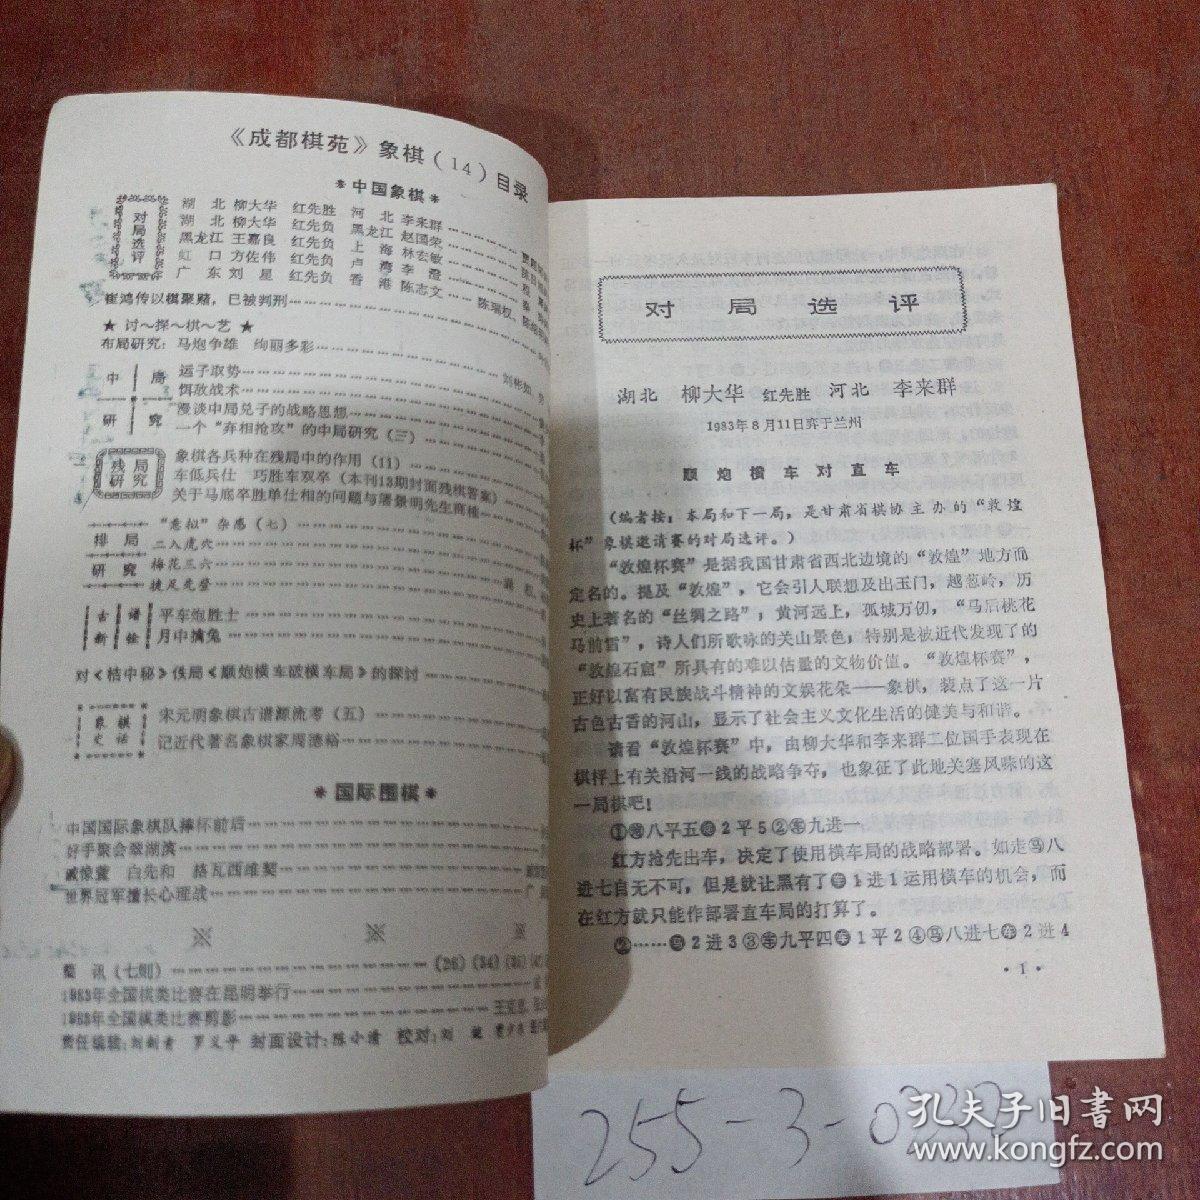 《成都棋苑》象棋（14）目录
*中国象棋*
对局选评
湖 北 柳大华 红先胜 河 北 李来群
湖 北 柳大华 红先负 黑龙江 赵国荣
黑龙江 王嘉良 红先负 上 海 林宏敏
虹 口 方佐伟 红先负 卢 湾 李 澄
广 东 刘 星 红先负 香 港 陈志文
崔鸿传以棋聚赌，已被判刑 陈瑞权、
★ 讨～探～棋～艺 ★
布局研究：马炮争雄 绚丽多彩 刘彬如
中 局
研 究
运子取势
饵敌战术
漫谈中局兑子的战略思想
一个“弃相抢攻”的中局研究（三）
残局
研究
象棋各兵种在残局中的作用（11）
车低兵仕 巧胜车双卒（本刊13期封面残棋答案）
关于马底卒胜单仕相的问题与屠景明先生商榷
排 局
研 究
“意拟”杂感（七）
二入虎穴
梅花三六
捷足先登
古 谱
新 绘
平车炮胜士
月中擒兔
对《桔中秘》佚局《顺炮横车破横车局》的探讨
象 棋
史 话
宋元明象棋古谱源流考（五）
记近代著名象棋家周德裕
*国际围棋*
中国国际象棋队捧杯前后
好手聚会翠湖滨
戚惊萱 白先和 格瓦西维契
世界冠军擅长心理战
※ ※ ※
简 讯（七则） （26）（34）（35）
1983年全国棋类比赛在昆明举行
1983年全国棋类比赛剪影
责任编辑：刘剑青 罗义平 封面设计：陈小清 校对：刘
对 局 选 评
湖北 柳大华 红先胜 河北 李来群
1983年8月11日弈于兰州
顺 炮 横 车 对 直 车
（编者按：本局和下一局，是甘肃省棋协主办的“敦煌
杯”象棋邀请赛的对局选评。）
“敦煌杯赛”是据我国甘肃省西北边境的“敦煌”地方而
定名的。提及“敦煌”，它会引人联想及出玉门，越葱岭，历
史上著名的“丝绸之路”，黄河远上，孤城万仞，“马后桃花
马前雪”，诗人们所歌咏的关山景色，特别是被近代发现了的
“敦煌石窟”所具有的难以估量的文物价值。“敦煌杯赛”，
正好以富有民族战斗精神的文娱花朵——象棋，装点了这一片
古色古香的河山，显示了社会主义文化生活的健美与和谐。
请看“敦煌杯赛”中，由柳大华和李来群二位国手表现在
棋枰上有关沿河一线的战略争夺，也象征了此地关塞风味的这
一局棋吧！
①炮八平五炮2平5②车九进一
红方抢先出车，决定了使用横车局的战略部署。如走马八
进七自无不可，但是就让黑有了车1进1运用横车的机会，而
在红方就只能作部署直车局的打算了。
②……马2进3③车九平四车1平2④马八进七车2进4
·1·
255-3-0
孔夫子旧书网
www.kongfz.com